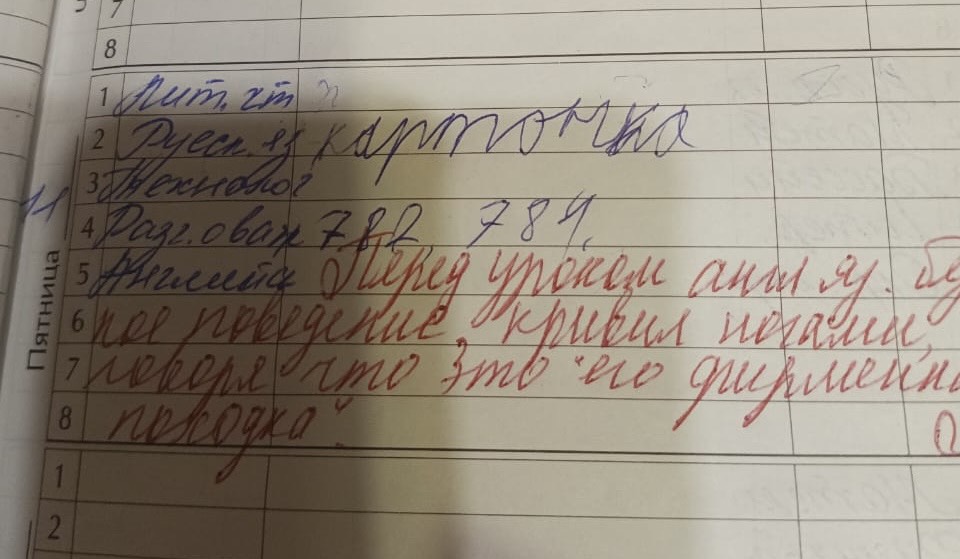 7
8
1 Лит. чт
2 Русск. яз карточка
3 Технолог
11
4 Разг. о важ 782, 784.
Пятница
5 Английск Перед уроком англ яз.
6 ное поведение, кривил ногами,
7 говоря что это "его фирменна
8 походка".
1
2